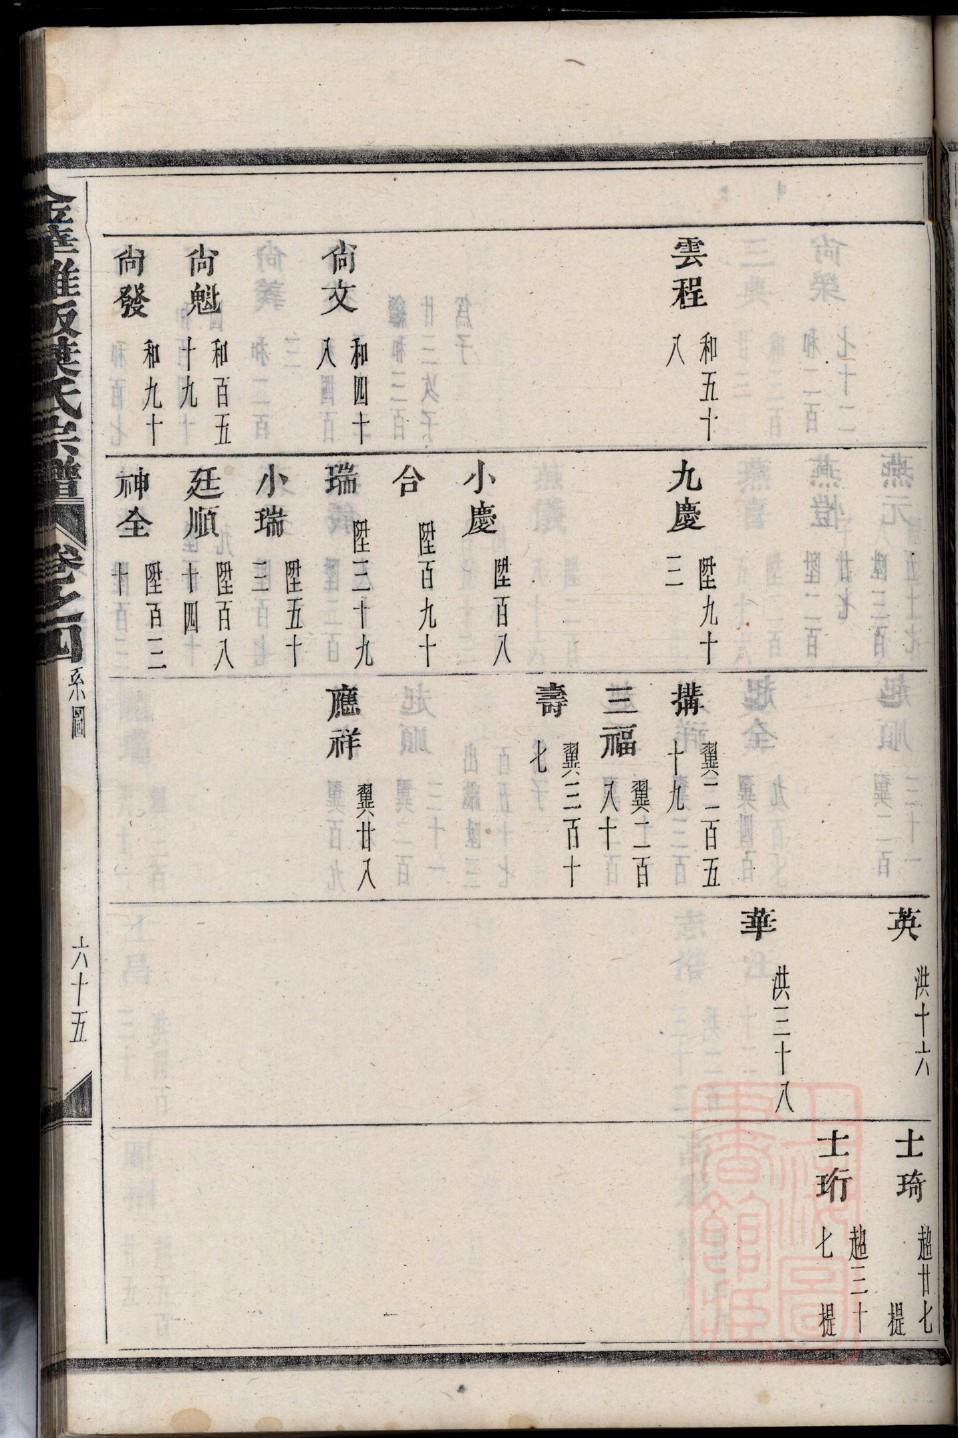 雲程 和五十八
尙文 和四十八
尙魁 和百五十九
尙發 和九十
九慶 陞九十三
小慶 陞百八
合 陞百九十
瑞 陞三十九
小瑞 陞五十三
廷順 陞百八十四
神全 陞百三十
搆 翼二百五十九
三福 翼二百八十
壽 翼三百十七
應祥 翼廿八
英 洪十六
華 洪三十八
士琦 超廿七 提
士珩 超三十七 提
金華雅畈葉氏宗譜 卷之四 系圖 六十五